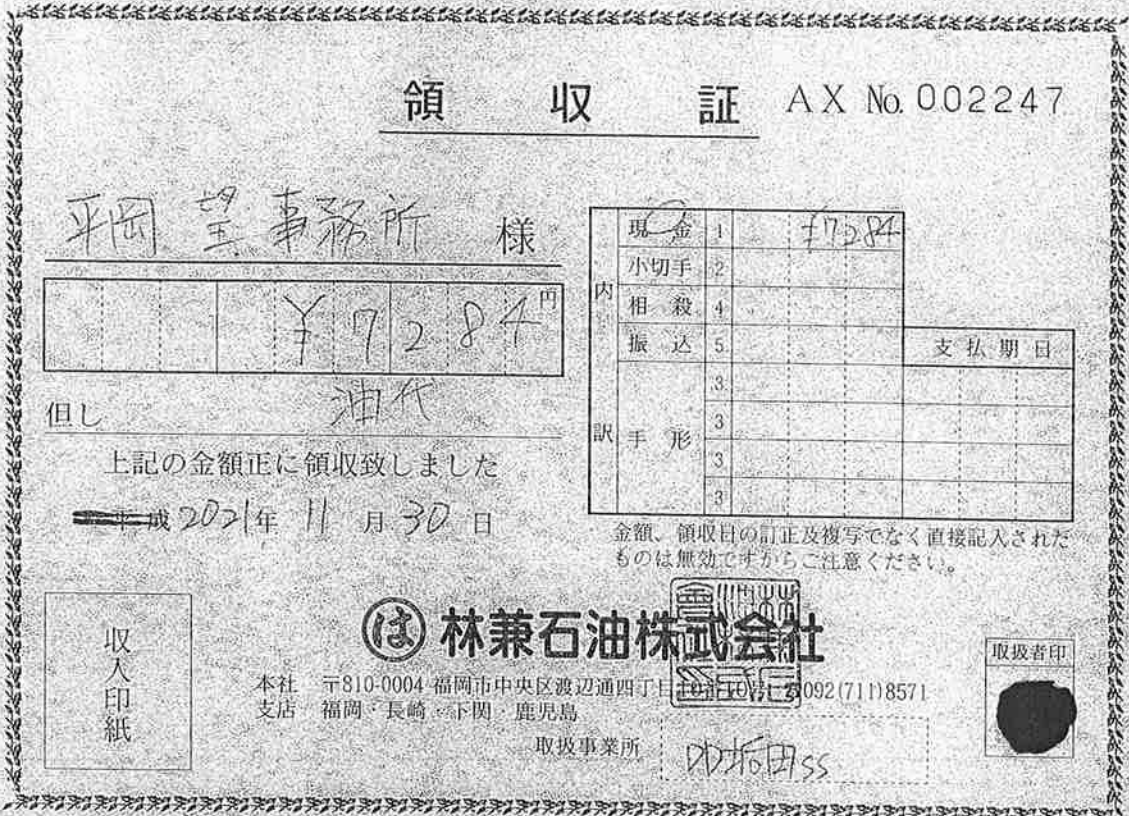 領 収 証 AX No. 002247
平岡 望 事務所 様
¥7284円
但し 油代
上記の金額正に領収致しました
平成 2021年 11月 30日
内訳
現金 1 ¥7284
小切手 2
相殺 4
振込 5 支払期日
手形 3
3
3
3
金額、領収日の訂正及複写でなく直接記入された
ものは無効ですからご注意ください。
収入印紙
は 林兼石油株式会社
本社 〒810-0004 福岡市中央区渡辺通四丁目10番10号 ☎092(711)8571
支店 福岡・長崎・下関・鹿児島
取扱事業所
取扱者印